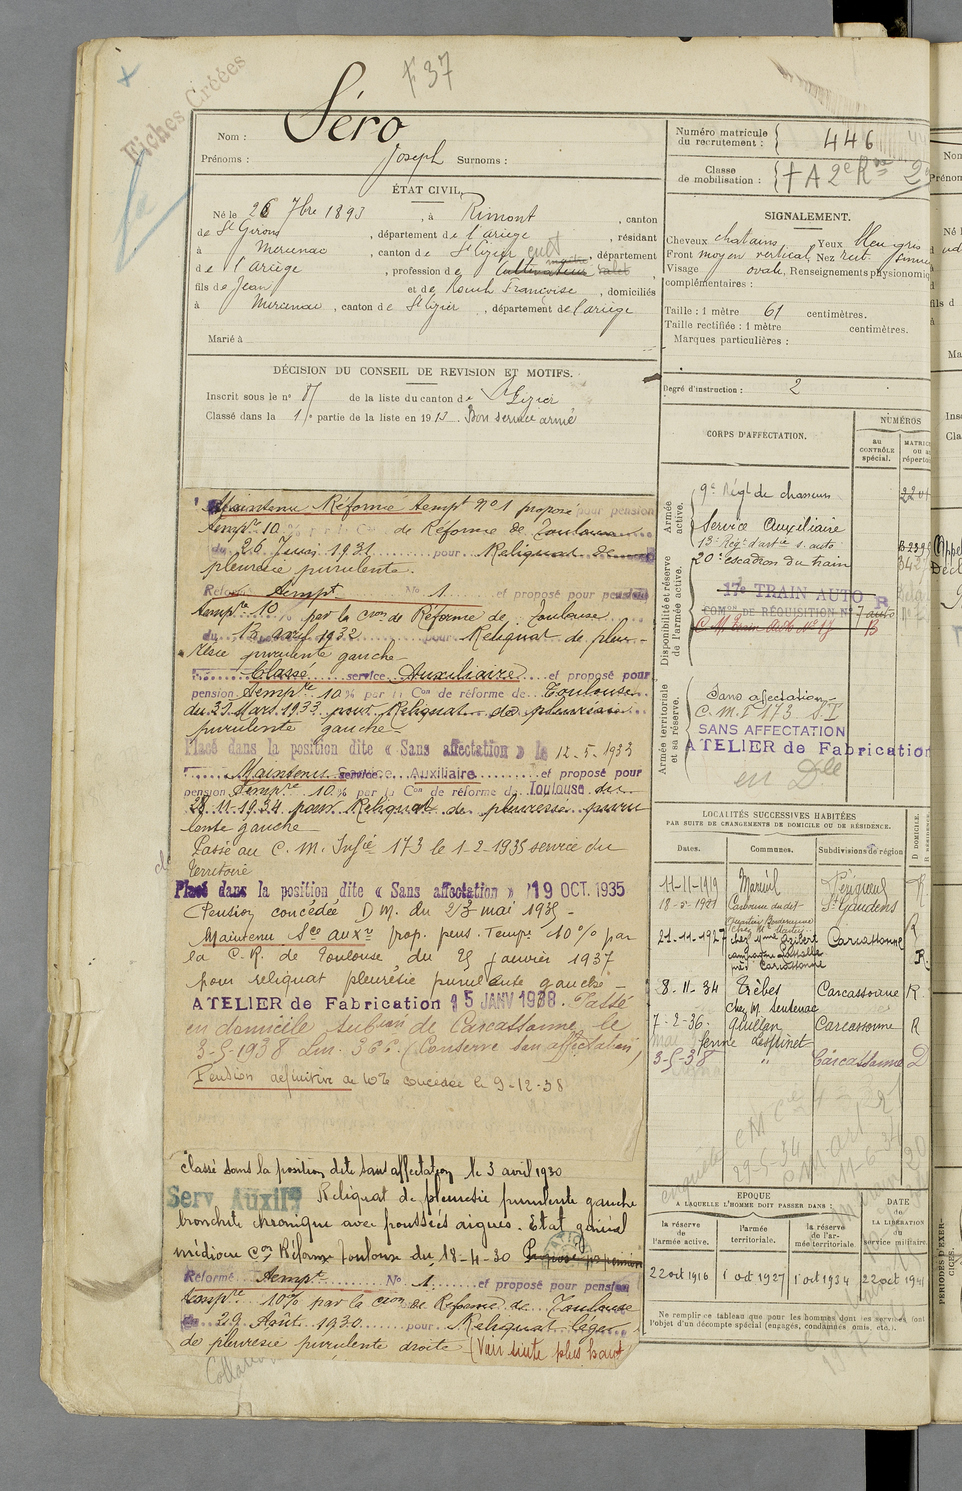 Fiches Créées
37
Nom : Séro
Prénoms : Joseph Surnoms :
ÉTAT CIVIL.
Né le 26 7bre 1893, à Rimont, canton
de St Girons, département de l'ariège, résidant
à Mercenac, canton de St Lizier, département
de l'Ariège, profession de Cultivateur
fils de Jean et de Rouch Françoise, domiciliés
à Mercenac, canton de St Lizier, département de l'ariège
Marié à
DÉCISION DU CONSEIL DE REVISION ET MOTIFS.
Inscrit sous le n° 87 de la liste du canton de St Lizier
Classé dans la 1re partie de la liste en 1913. Bon service armé
Maintenu Réformé tempt n°1 proposé pour pension
tempre 10 % par la Con de Réforme de Toulouse
du 26 Juin 1931 pour Reliquat de
pleuresie purulente.
Reformé Tempt No 1 et proposé pour pension
tempre 10 % par la Con de Réforme de Toulouse
du 13 avril 1932 pour Reliquat de pleu-
résie purulente gauche
Classé service Auxiliaire et proposé pour
pension tempre 10 % par la Con de réforme de Toulouse
du 30 Mars 1933 pour Reliquat de pleurésie
purulente gauche
Placé dans la position dite « Sans affectation » le 12-5-1933
Maintenu service Auxiliaire et proposé pour
pension Tempre 10 % par la Con de réforme de Toulouse du
28-11-1934 pour Reliquat de pleuresie puru
lente gauche
Passé au C. M. Infie 173 le 1-2-1935 service du
Territoire
Placé dans la position dite « Sans affectation » 19 OCT. 1935
Pension concédée D M. du 23 mai 1935 -
Maintenu Sce auxre prop. pens. Tempre 10 % par
la C. R. de Toulouse du 25 janvier 1937
pour reliquat pleurésie purulente gauche -
ATELIER de Fabrication 15 JANV 1938. Passé
en domicile subon de Carcassonne le
3-5-1938 (Conserve son affectation)
Pension définitive de 10% concédée le 9-12-38
Classé dans la position dite sans affectation le 3 avril 1930
Serv. Auxilre Reliquat de pleuresie purulente gauche
bronchite chronique avec poussées aigues. Etat général
médiocre Con Réforme Toulouse du 18-4-30 Proposé pr pension
Réformé Tempt No 1 et proposé pour pension
tempre 10% par la Con de Réforme de Toulouse
du 29 Août 1930 pour Reliquat léger
de pleuresie purulente droite (Voir suite plus haut)
Numéro matricule du recrutement : 446
Classe de mobilisation :
SIGNALEMENT.
Cheveux chatains, Yeux bleu gris
Front moyen vertical, Nez rect.
Visage ovale, Renseignements physionomiq
complémentaires :
Taille : 1 mètre 61 centimètres.
Taille rectifiée : 1 mètre centimètres.
Marques particulières :
Degré d'instruction : 2
CORPS D'AFFECTATION.
NUMÉROS
au CONTRÔLE spécial.
Armée active.
9e Régt de chasseurs
Service Auxiliaire
Disponibilité et réserve de l'armée active.
13e Regt d'artie s. auto
20e escadron du train
17e TRAIN AUTO R
COMon DE RÉQUISITION No 7 auto
Armée territoriale et sa réserve.
Sans affectation
C. M. I 173 S T
SANS AFFECTATION
ATELIER de Fabrication
en Dlle
LOCALITÉS SUCCESSIVES HABITÉES
PAR SUITE DE CHANGEMENTS DE DOMICILE OU DE RÉSIDENCE.
Dates. Communes. Subdivisions de région
11-11-1919 Mareuil Périgueux R
St Gaudens
21-11-1927 Carcassonne R
près Carcassonne R.
8-11-34 Trèbes Carcassonne R
chez M. Sentenac
7-2-36. Quillan Carcassonne R
3-5-38 " Carcassonne D
EPOQUE
A LAQUELLE L'HOMME DOIT PASSER DANS :
la réserve de l'armée active.
l'armée territoriale.
la réserve de l'armée territoriale
DATE de LA LIBÉRATION du service militaire.
22 oct 1916 1 oct 1927 1 oct 1934 22 oct 1941
Ne remplir ce tableau que pour les hommes dont les services font
l'objet d'un décompte spécial (engagés, condamnés omis, etc.).
PÉRIODES D'EXERCICES.